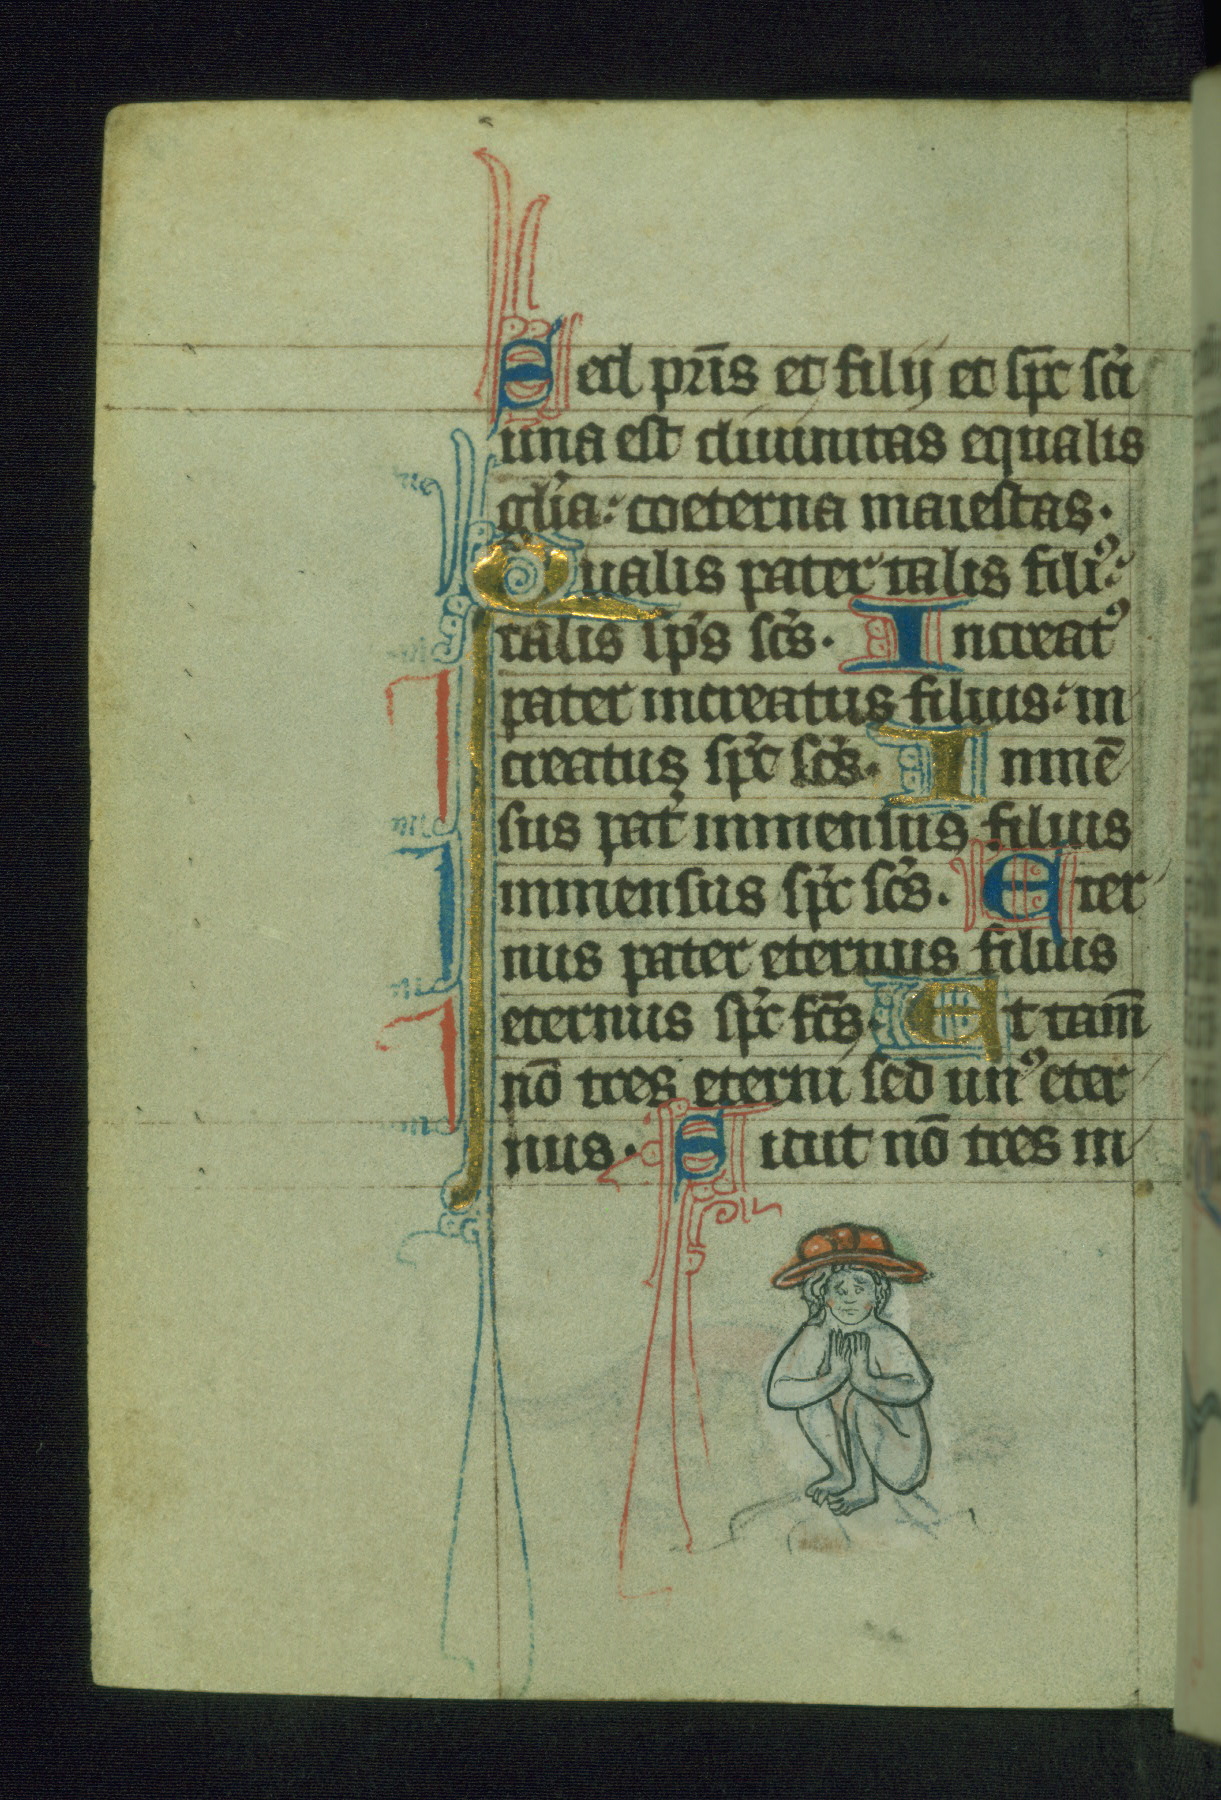 Sed pr̄is et filij et sp̄c sc̄i
una est diuinitas equalis
gl'ia: coeterna maiestas.
Qualis pater talis fili⁹:
talis sp̄s sc̄s. Increat⁹
pater increatus filius: in
creatus sp̄c sc̄s. Inmē
sus pat̉ inmensus filius
inmensus sp̄c sc̄s. Eter
nus pater eternus filius
eternus sp̄c sc̄s. Et tam̄
nō tres eterni sed un⁹ eter
nus. Sicut nō tres in